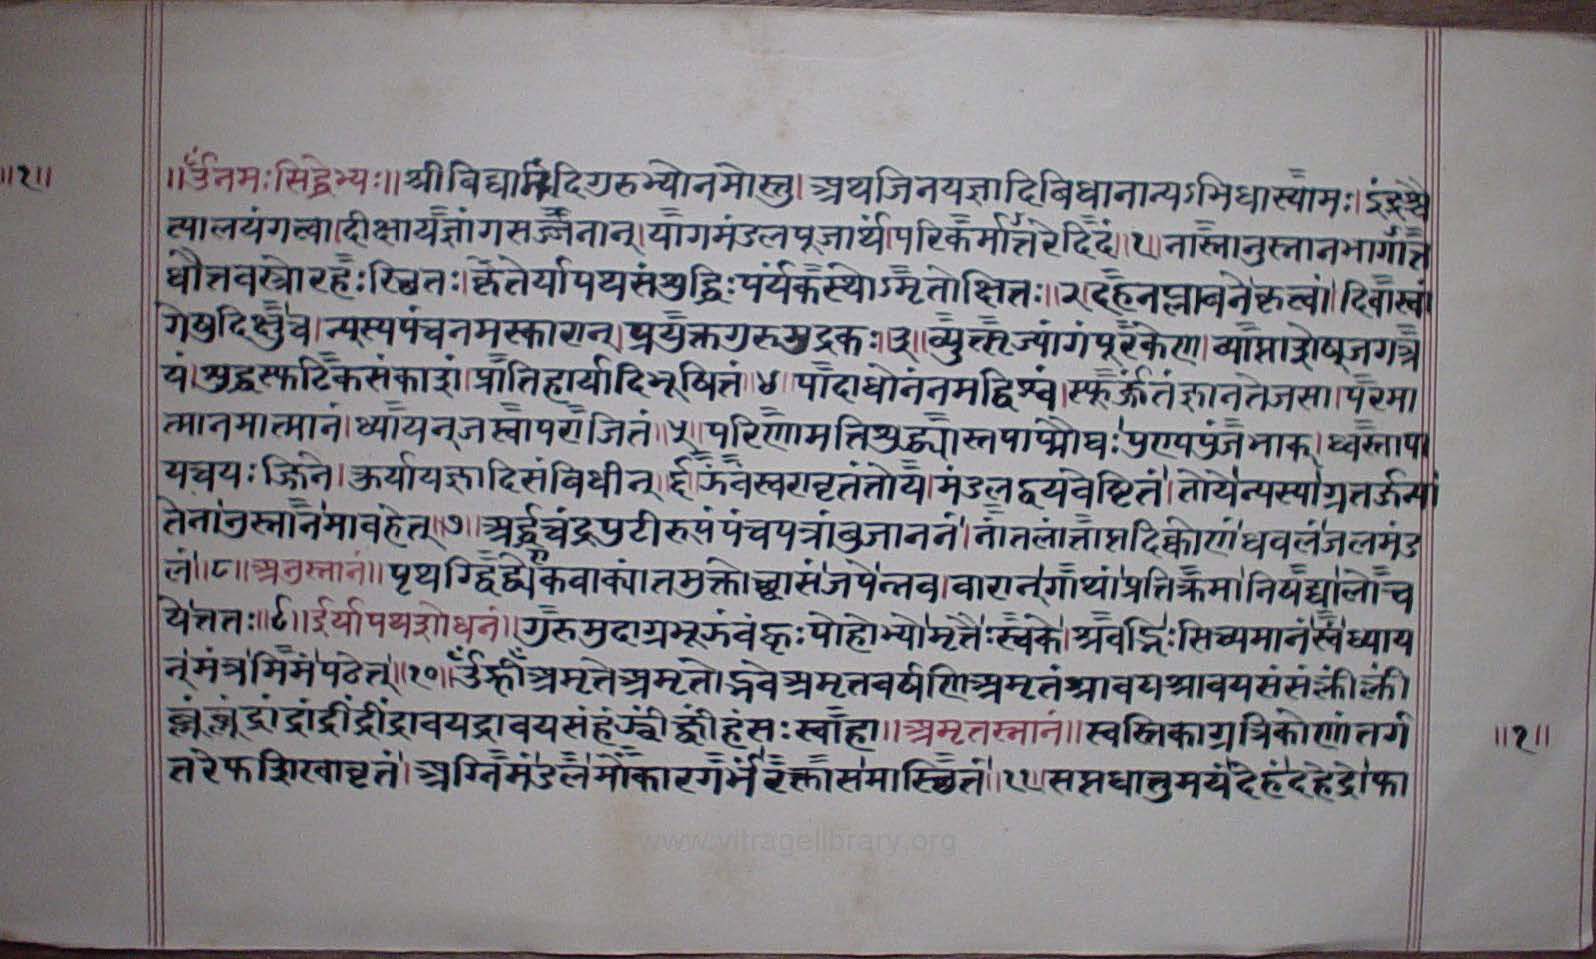 ॥१॥
॥ॐनमःसिद्धेभ्यः॥श्रीविद्यानंदिगुरुभ्योनमोस्तु।अथजिनयज्ञादिविधानान्यऽभिधास्यामः।इंद्रश्चै
त्यालयंगत्वा।दीक्षायज्ञांगसज्जनान्।यागमंडलपूजार्थं।परिकर्मात्तरेदिदं॥१॥नास्नानुस्नानभागात्त
धौतवस्त्रोरहःस्थितः।कृतेर्यापथसंशुद्धिःपर्यंकस्थोऽमृतोक्षितः॥२।दहनप्लावनेकृत्वा।दिवास्वां
गेषुदिक्षुच।न्यस्यपंचनमस्कारान्।प्रयुक्तगुरुमुद्रकः।३॥व्युत्सृज्यांगंपूरकेण।व्याप्ताशेषजगत्त्र
यं।शुद्धस्फटिकसंकाशं।प्रातिहार्यादिभूषितं॥४।पादाधोनंनमद्विश्वं।स्फूर्जंतंज्ञानतेजसा।परमा
त्मानमात्मानं।ध्यायन्जस्वापराजितं॥५।परिणामतिशुद्ध्यास्तपाप्मौघःपुण्यपुंजभाक्।ध्वस्तापा
यचयःजिने।कुर्यायज्ञादिसंविधीन्।६।झंवंस्वरावृतंतोय।मंडलद्वयवेष्टितं।तोयेन्यस्याग्रतर्जन्यां
तेनानुस्नानमावहेत्।७।अर्द्धचंद्रपुटीरुपंपंचपत्रांबुजाननं।नांतलांताप्तदिक्कोणंधवलंजलमंड
लं॥८॥अनुस्नानं॥पृथग्द्विर्द्व्येकवाक्यांतमुक्तोच्छासंजपेन्नव।वारान्गाथांप्रतिक्रमानियद्यालोच
येत्ततः॥९॥ईर्यापथशोधनं॥गुरुमुदाग्रभूझंवंक्वःपोहोभ्योमृतैःस्वके।श्रवद्भिःसिच्यमानंस्वंध्याय
न्मंत्रमिमंपठेत्॥१०॥ॐह्रीँअमृतेअमृतोद्भवेअमृतवर्षिणिअमृतंश्रावयश्रावयसंसंक्लींक्लीं
ब्लूंब्लूंद्रांद्रांद्रींद्रींद्रावयद्रावयसंहंझ्वींक्ष्वींहंसःस्वाहा॥अमृतस्नानं॥स्वस्तिकाग्रत्रिकोणांतर्ग
तरेफशिखावृतं।अग्निमंडलमोंकारगर्भंरक्तासमास्थितं॥११॥सप्तधातुमयंदेहंदहेद्रेफा
॥१॥
www.vitragelibrary.org